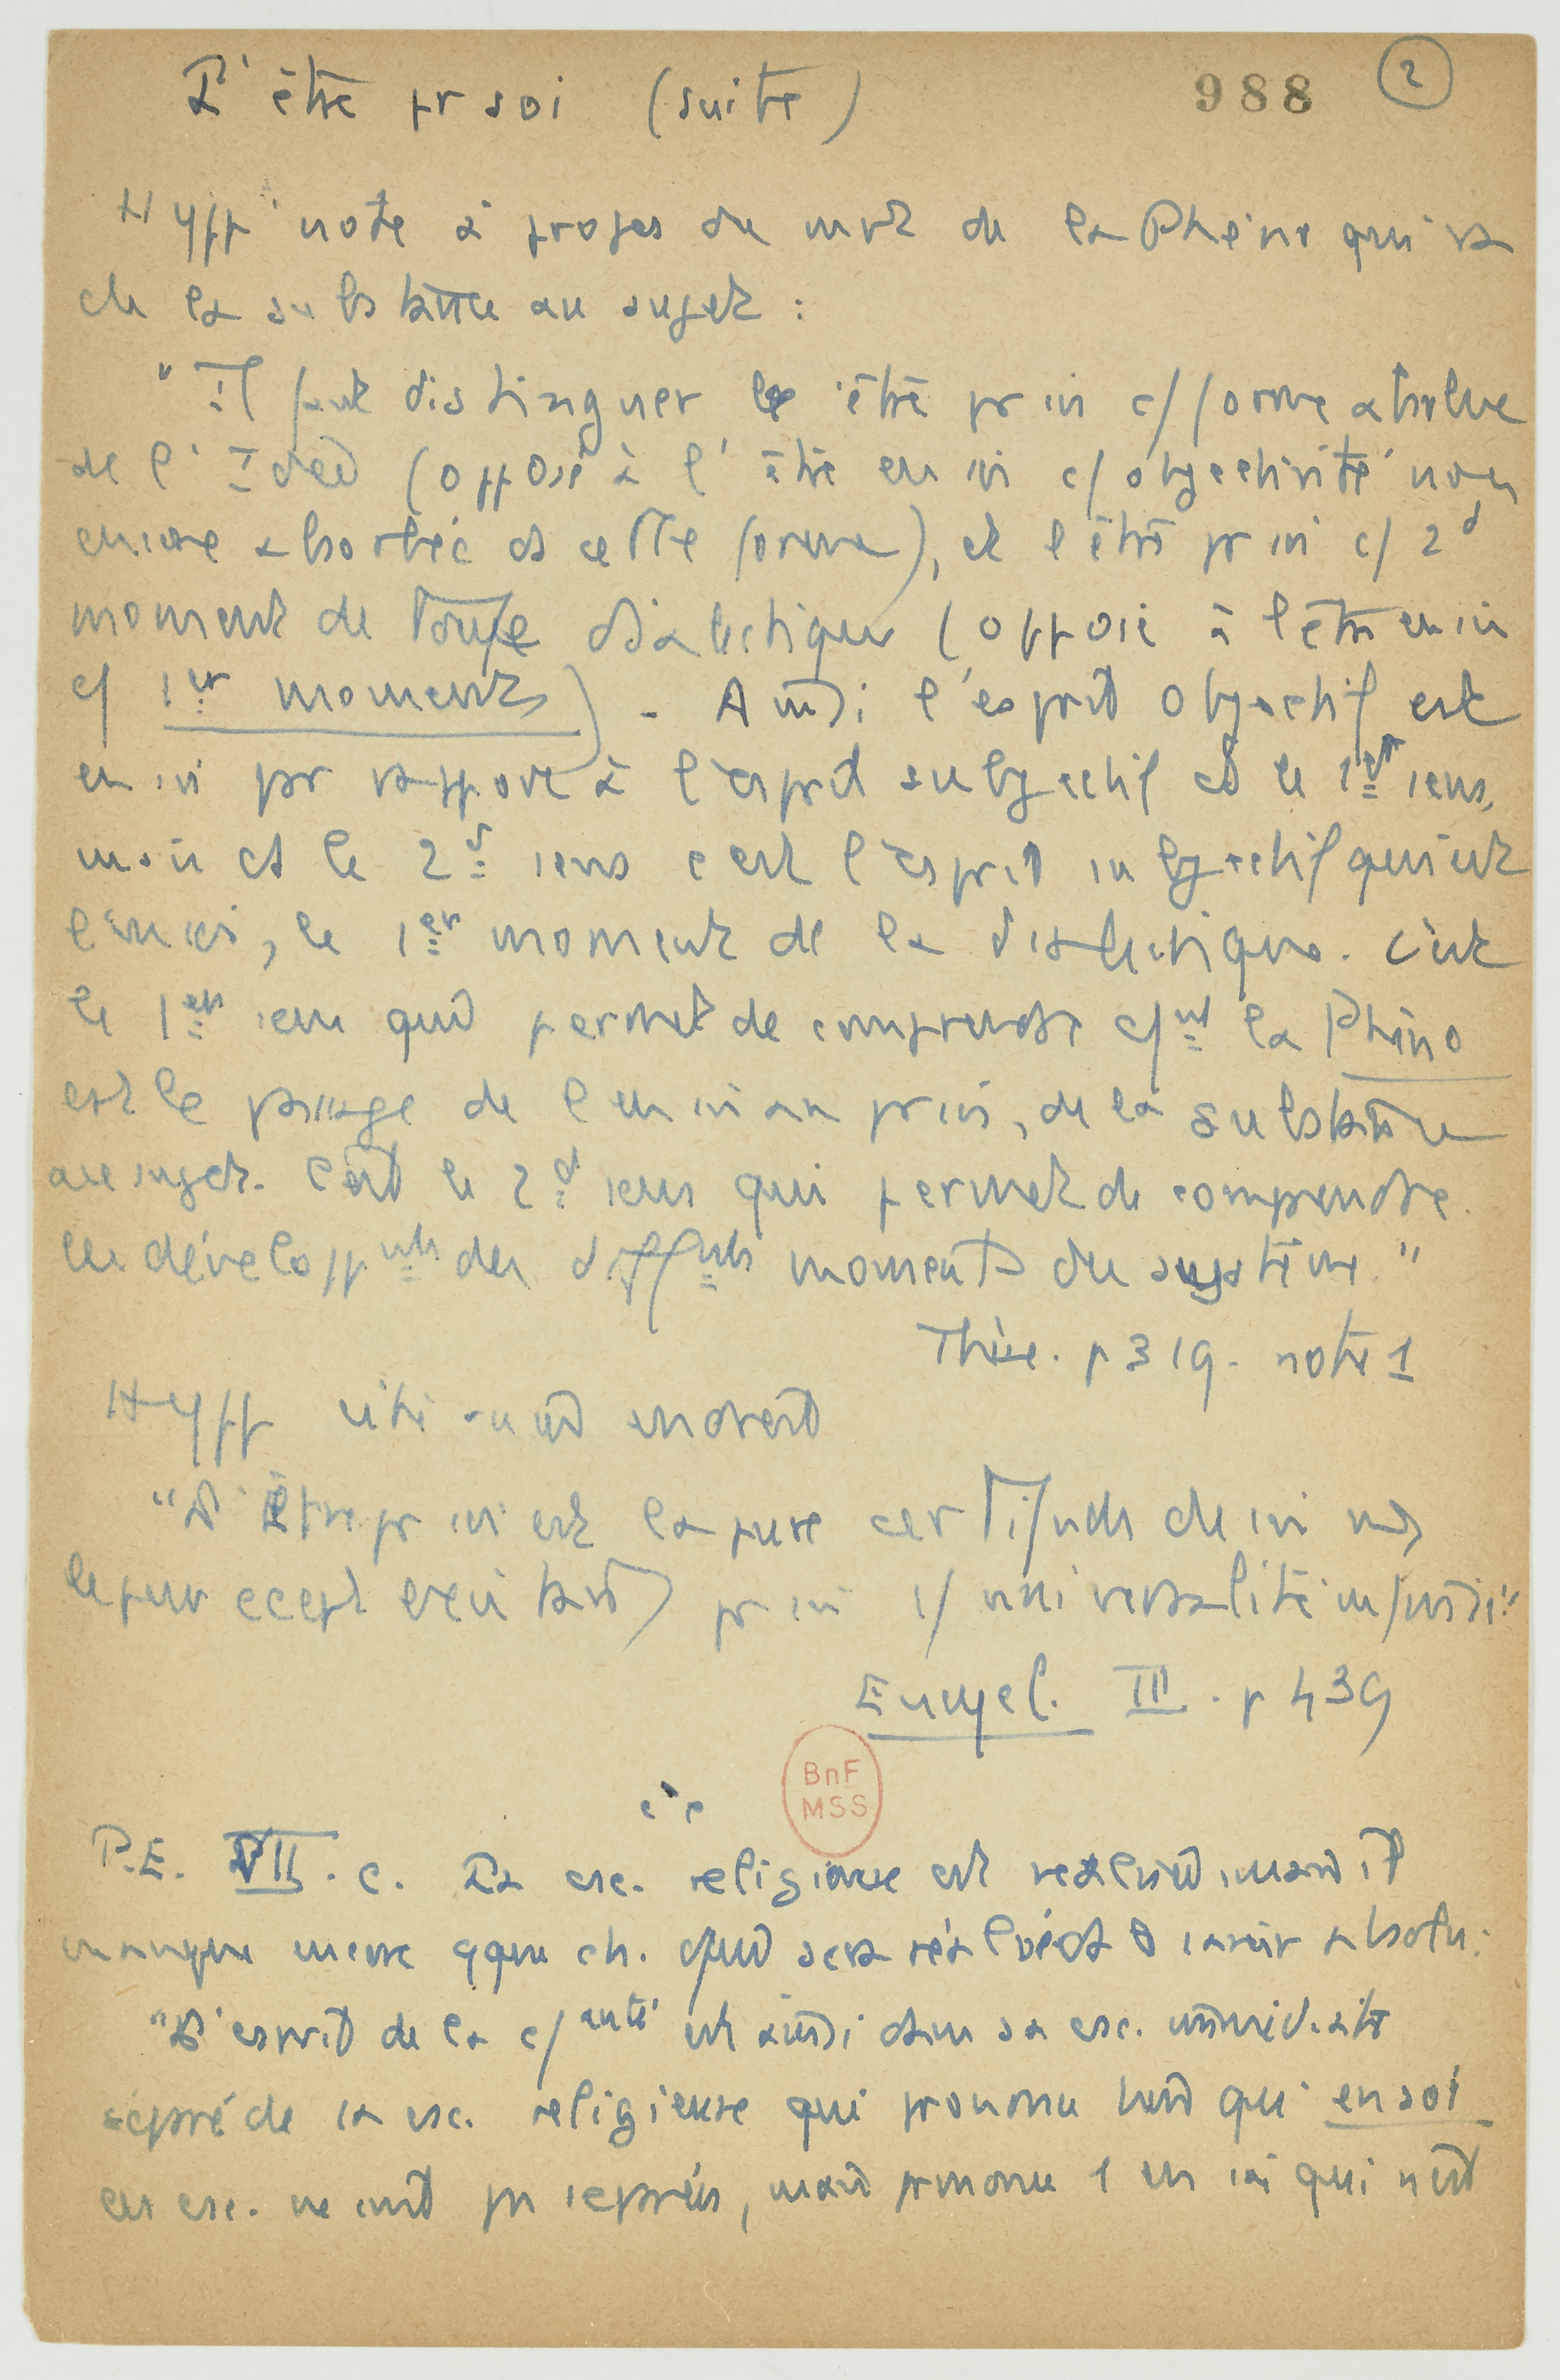 L'être pr soi (suite)
988 2
Hypp note à propos du mvt de la Phéno qui va
de la substance au sujet :
"Il faut distinguer l'être pr soi c/ forme absolue
de l'Idée (opposé à l'être en soi c/ objectivité non
encore absorbée ds cette forme), et l'être pr soi c/ 2d
moment de toute dialectique (opposé à l'être en soi
c/ 1er moment). Ainsi l'esprit objectif est
en soi par rapport à l'esprit subjectif ds le 1er sens,
mais ds le 2d sens c'est l'esprit subjectif qui est
l'en soi, le 1er moment de la dialectique. C'est
le 1er sens qui permet de comprendre c/mt la Phéno
est le passage de l'en soi au pr soi, de la substance
au sujet. C'est le 2d sens qui permet de comprendre
les développmts des diffnts moments du système."
Thèse. p 319. note 1
Hypp cite aussi endroit
"L'Être pr soi est la pure certitude de soi
le pur cept existant pr soi c/ universalité infinie"
Encycl. III. p 439
BnF
MSS
P.E. VII. c. La csc. religieuse est réalisée mais il
manque encore qque ch. qui sera réalisé ds le savoir absolu :
"L'esprit de la c/auté est ainsi dans sa csc. immédiate
séparé de sa csc. religieuse qui prononce bien qu' en soi
ces csc. ne sont pas séparées, mais prononce 1 en soi qui n'est